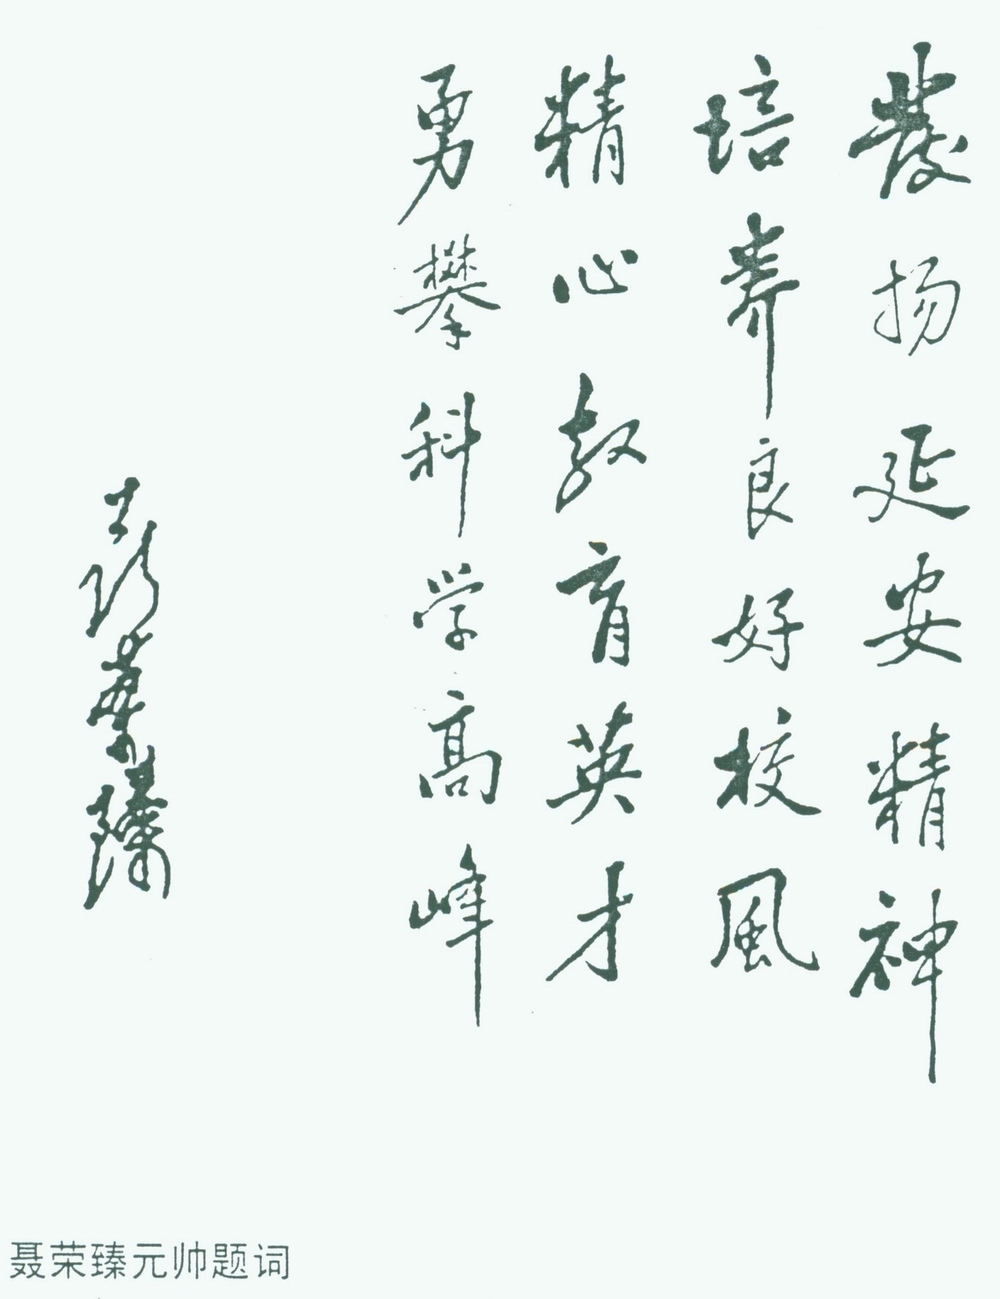 發扬延安精神
培养良好校風
精心教育英才
勇攀科学高峰
聂荣臻
聂荣臻元帅题词